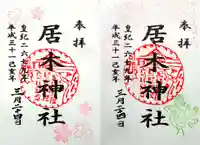 奉拝
居木神社
皇紀二六七九年
平成三十一己亥年
三月二十四日
奉拝
居木神社
皇紀二六七九年
平成三十一己亥年
三月二十四日